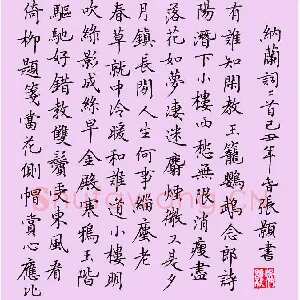 倚柳題箋當花側帽賞心應比
驅馳好錯教雙鬢受東風看
吹綠影成絲早金殿寒鴉玉階
春草就中冷暖和誰道小樓明
月鎮長閑人生何事緇塵老
落花如夢淒迷麝煙微又是夕
陽潛下小樓西愁無限消瘦盡
有誰知閑教玉籠鸚鵡念郎詩
納蘭詞二首己丑年春張顥書